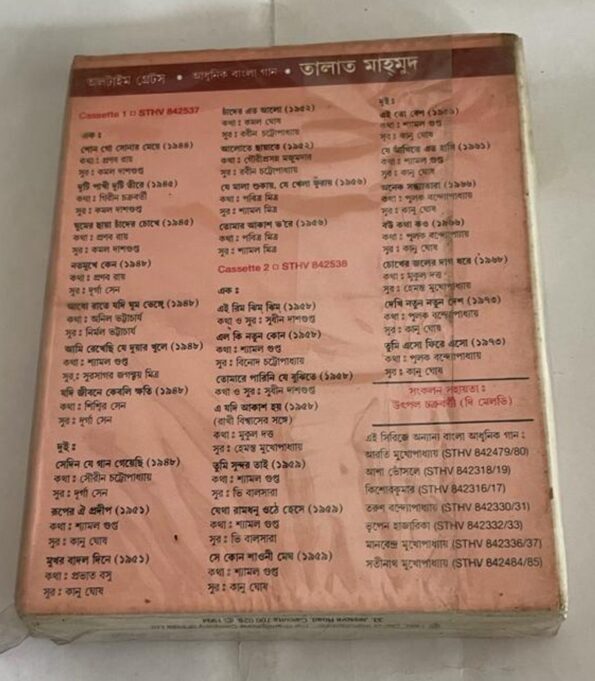 অলটাইম গ্রেটস • আধুনিক বাংলা গান • তালাত মাহ্‌মুদ
Cassette 1 □ STHV 842537
এক :
শোন গো সোনার মেয়ে (১৯৪৪)
কথা : প্রণব রায়
সুর : কমল দাশগুপ্ত
দুটি পাখী দুটি তীরে (১৯৪৫)
কথা : গিরীন চক্রবর্তী
সুর : কমল দাশগুপ্ত
ঘুমের ছায়া চাঁদের চোখে (১৯৪৫)
কথা : প্রণব রায়
সুর : কমল দাশগুপ্ত
নতমুখে কেন (১৯৪৮)
কথা : প্রণব রায়
সুর : দুর্গা সেন
আধো রাতে যদি ঘুম ভেঙ্গে (১৯৪৮)
কথা : অনিল ভট্টাচার্য
সুর : নির্মল ভট্টাচার্য
আমি রেখেছি যে দুয়ার খুলে (১৯৪৮)
কথা : শ্যামল গুপ্ত
সুর : সুরসাগর জগন্ময় মিত্র
যদি জীবনে কেবলি ক্ষতি (১৯৪৮)
কথা : শিশির সেন
সুর : দুর্গা সেন
দুই :
সেদিন যে গান গেয়েছি (১৯৪৮)
কথা : সৌরীন চট্টোপাধ্যায়
সুর : দুর্গা সেন
রূপের ঐ প্রদীপ (১৯৫১)
কথা : শ্যামল গুপ্ত
সুর : কানু ঘোষ
মুখর বাদল দিনে (১৯৫১)
কথা : প্রভাত বসু
সুর : কানু ঘোষ
চাঁদের এত আলো (১৯৫২)
কথা : কমল ঘোষ
সুর : রবীন চট্টোপাধ্যায়
আলোতে ছায়াতে (১৯৫২)
কথা : গৌরীপ্রসন্ন মজুমদার
সুর : রবীন চট্টোপাধ্যায়
যে মালা শুকায়, যে খেলা ফুরায় (১৯৫৬)
কথা : পবিত্র মিত্র
সুর : শ্যামল মিত্র
তোমার আকাশ ভ'রে (১৯৫৬)
কথা : পবিত্র মিত্র
সুর : শ্যামল মিত্র
Cassette 2 □ STHV 842538
এক :
এই রিম ঝিম্ ঝিম্ (১৯৫৮)
কথা ও সুর : সুধীন দাশগুপ্ত
এল কি নতুন কোন (১৯৫৮)
কথা : শ্যামল গুপ্ত
সুর : বিনোদ চট্টোপাধ্যায়
তোমারে পারিনি যে বুঝিতে (১৯৫৮)
কথা ও সুর : সুধীন দাশগুপ্ত
এ যদি আকাশ হয় (১৯৫৮)
(রাখী বিশ্বাসের সঙ্গে)
কথা : মুকুল দত্ত
সুর : হেমন্ত মুখোপাধ্যায়
তুমি সুন্দর তাই (১৯৫৯)
কথা : শ্যামল গুপ্ত
সুর : ভি বালসারা
যেথা রামধনু ওঠে হেসে (১৯৫৯)
কথা : শ্যামল গুপ্ত
সুর : ভি বালসারা
সে কোন শাওনী মেঘ (১৯৫৯)
কথা : শ্যামল গুপ্ত
সুর : কানু ঘোষ
দুই :
এই তো বেশ (১৯৫৯)
কথা : শ্যামল গুপ্ত
সুর : কানু ঘোষ
যে আঁখিতে এত হাসি (১৯৬১)
কথা : শ্যামল গুপ্ত
সুর : কানু ঘোষ
অনেক সন্ধ্যাতারা (১৯৬৬)
কথা : পুলক বন্দ্যোপাধ্যায়
সুর : কানু ঘোষ
বউ কথা কও (১৯৬৬)
কথা : পুলক বন্দ্যোপাধ্যায়
সুর : কানু ঘোষ
চোখের জলের দাগ ধরে (১৯৬৮)
কথা : মুকুল দত্ত
সুর : হেমন্ত মুখোপাধ্যায়
দেখি নতুন নতুন দেশ (১৯৭৩)
কথা : পুলক বন্দ্যোপাধ্যায়
সুর : কানু ঘোষ
তুমি এসো ফিরে এসো (১৯৭৩)
কথা : পুলক বন্দ্যোপাধ্যায়
সুর : কানু ঘোষ
সংকলন সহায়তা :
উৎপল চক্রবর্তী (দি মেলডি)
এই সিরিজে অন্যান্য বাংলা আধুনিক গান :
আরতি মুখোপাধ্যায় (STHV 842479/80)
আশা ভোঁসলে (STHV 842318/19)
কিশোরকুমার (STHV 842316/17)
তরুণ বন্দ্যোপাধ্যায় (STHV 842330/31)
ভূপেন হাজারিকা (STHV 842332/33)
মানবেন্দ্র মুখোপাধ্যায় (STHV 842336/37)
সতীনাথ মুখোপাধ্যায় (STHV 842484/85)
33, Jessore Road, Calcutta 700 028. ℗ 1994